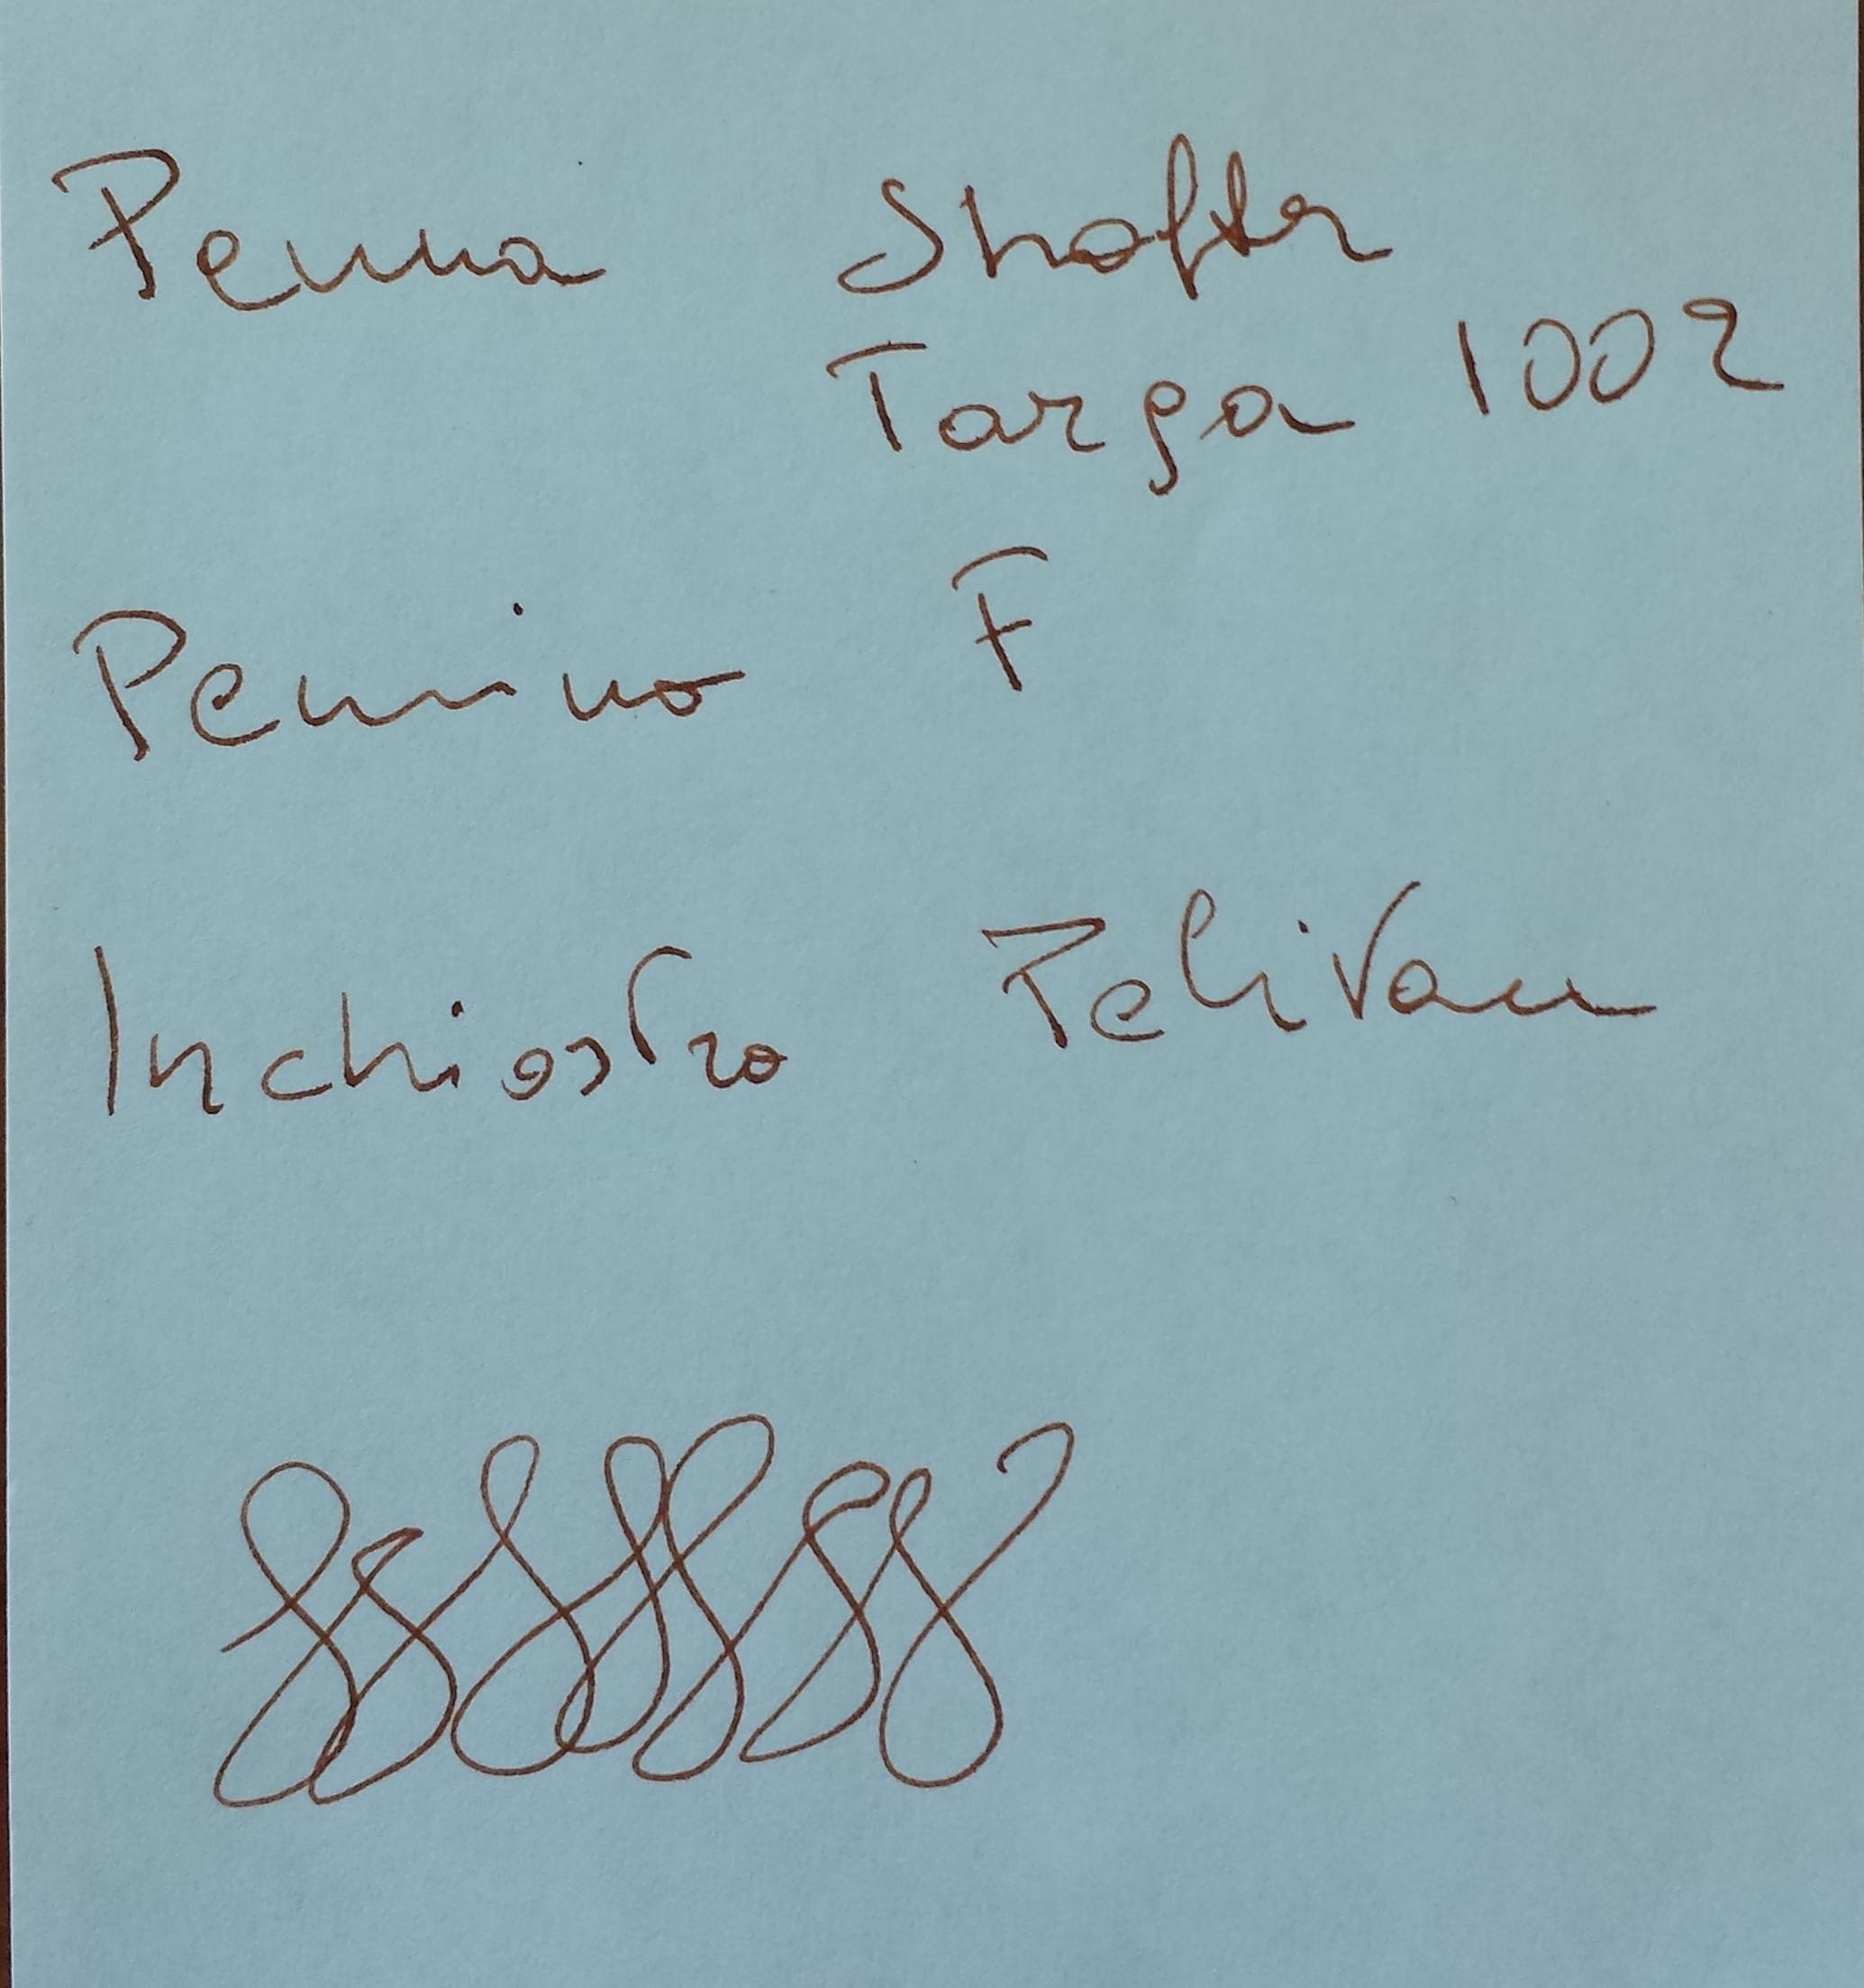 Penna Shafer
Targa 1002
Pennino F
Inchiostro Pelikan